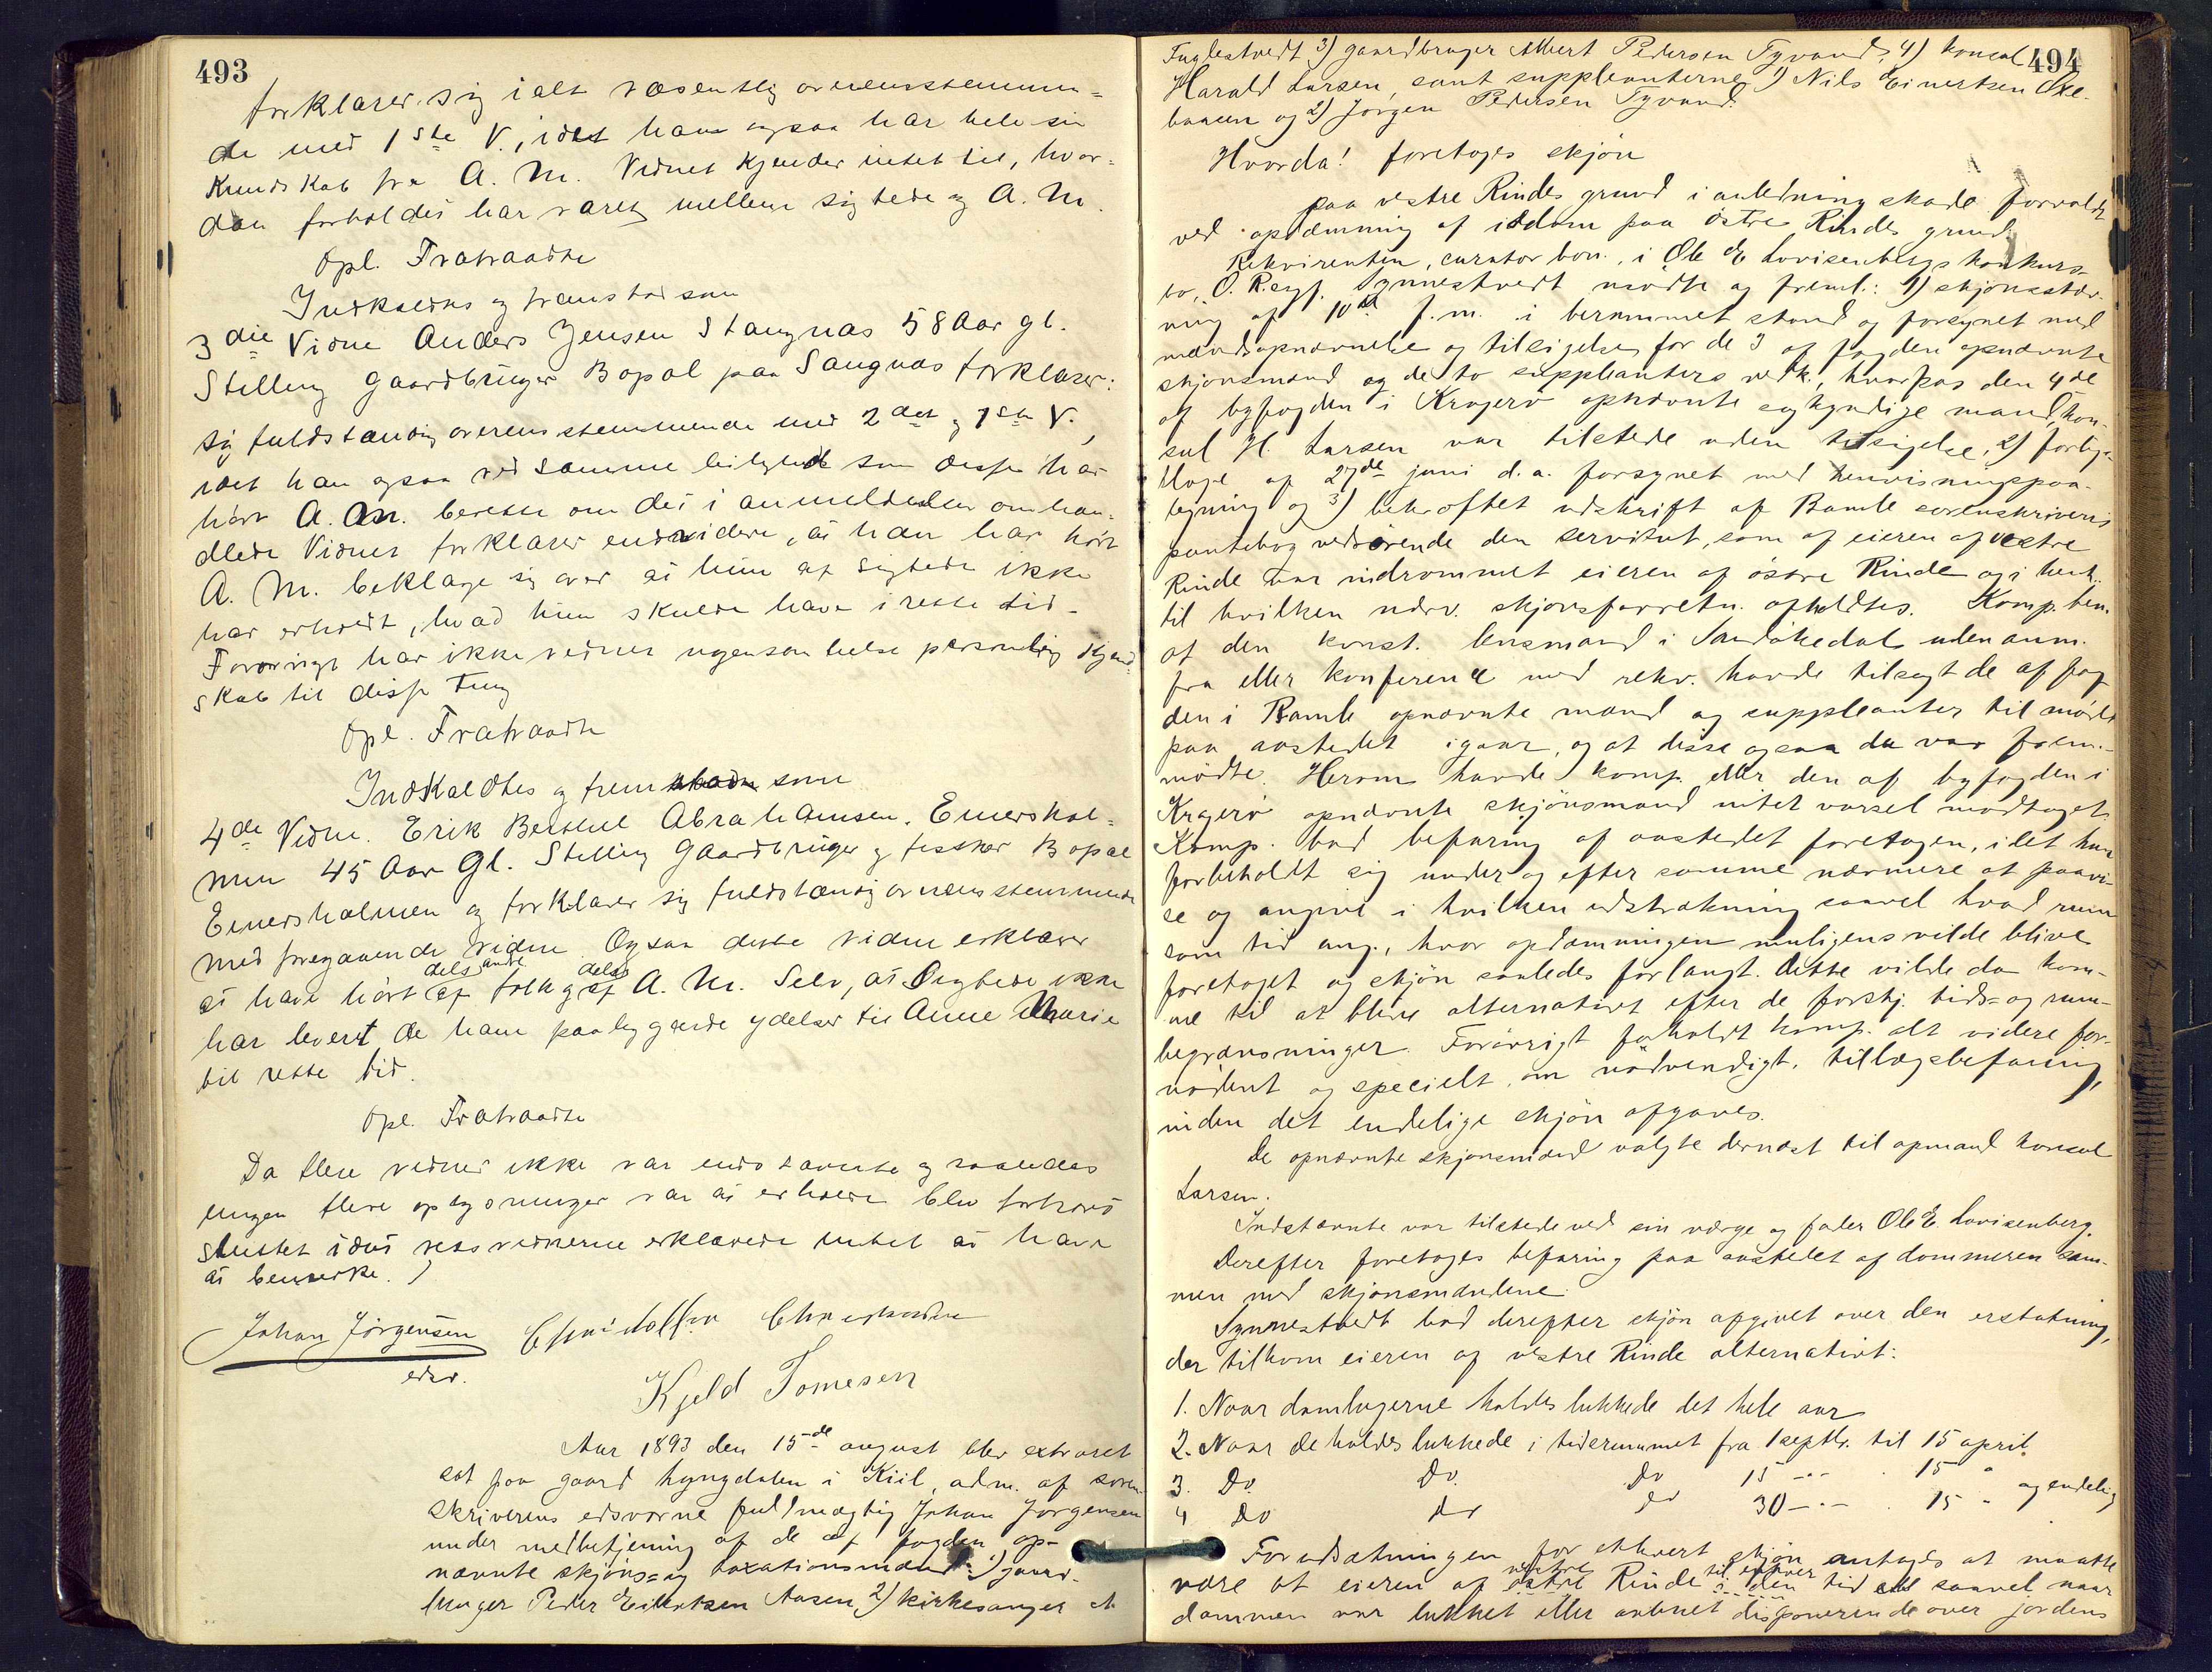 493
forklarer sig i alt væsentlig overensstemmen=
de med 1ste V., idet han ogsaa har hele sin
Kundskab fra A. M. Vidnet kjender intet til, hvor=
dan forholdet har været mellem sigtede og A. M.
Opl. Fratraadte
Indkaldtes og fremstod som
3die Vidne Anders Jensen Stangnæs 58 Aar gl.
Stilling Gaardbruger Bopæl paa Sangnæs forklarer:
sig fuldstændig overensstemmende med 2det og 1ste V.,
idet han ogsaa ved samme leilighed som disse har
hørt A. M. berette om det i anmeldelsen omhan=
dlede Vidnet forklarer endvidere, at han har hørt
A. M. beklage sig over at hun af Sigtede ikke
har erholdt, hvad hun skulde have i rette tid.
Forøvrigt har ikke vidnet nogensomhelst personlig Kjend
skab til disse Ting
Opl. Fratraadte
Indkaldtes og frem som
4de Vidne. Erik Berthel Abrahamsen. Emershol=
men 45 Aar Gl. Stilling Gaardbruger og fisker Bopæl
Emersholmen og forklarer sig fuldstændig overensstemmende
med foregaaende vidne. Ogsaa dette vidne erklærer
at have hørt dels af andre folk og dels af A. M. Selv, at Sigtede ikke
har levert de ham paaliggende ydelser til Anne Marie
til rette tid.
Opl. Fratraadte
Da flere vidner ikke var indstævnte og saaledes
ingen flere oplysninger var at erholde blev forhøret
sluttet idet retsvidnerne erklærede intet at have
at bemærke. )
Johan Jørgensen
edsv.
Kjeld Tomesen
Aar 1893 den 15de august blev extraret
sat paa gaard Lyngdalen i Kiil, adm. af soren
skriverens edsvorne fuldmægtig Johan Jørgensen
under medbetjening af de af fogden op-
nævnte skjøns= og taxationsmænd: 1) gaard-
bruger Peder Eilertsen Aasen, 2) kirkesanger
494
Fuglestvedt 3) gaardbruger Albert Pedersen Tyvand, 4) konsul
Harald Larsen, samt suppleanterne 1) Nils Einertsen Oxe-
baasen og 2) Jørgen Pedersen Tyvand.
Hvorda! foretoges skjøn
paa vestre Rindes grund i anledning skade forvoldt
ved opdæmning af isdam paa østre Rindes grund
Rekvirenten, curator bon., i Ole E. Lovisenbergs konkurs-
bo, O. R.sagf. Synnestvedt mødte og freml.: 1) skjønsstæv-
ning af 10de f.m. i berammet stand og forsynet med
mændsopnævnelse og tilsigelse for de 3 af fogden opnævnte
skjønsmænd og de to suppleanters vedk., hvorpaa den 4de
af byfogden i Kragerø opnævnte sagkyndige mand, kon-
sul H. Larsen var tilstede uden tilsigelse, 2) forligs-
klage af 27de juni d.a. forsynet med henvisningspaa-
tegning og 3) bekræftet udskrift af Bamle sorenskriveris
pantebog vedrørende den servitut, som af eieren af vestre
Rinde var indrømmet eieren af østre Rinde og i henh.
til hvilken nærv. skjønsforretn. afholdtes. Komp. bem.
at den konst. lensmand i Sandøkedal uden anm.
fra eller konference med rekv. havde tilsagt de af fog
den i Bamle opnævnte mænd og suppleanter til møde
paa aastedet igaar, og at disse ogsaa da var frem-
mødte. Herom havde komp. eller den af byfogden i
Kragerø opnævnte skjønsmand intet varsel modtaget.
Komp. bad befaring af aastedet foretagen, idet han
forbeholdt sig under og efter samme nærmere at paavi-
se og angive i hvilken udstrækning saavel hvad rum
som tid ang., hvor opdæmningen muligens vilde blive
foretaget og skjøn saaledes forlangt. Dette vilde da kom-
me til at blive alternativt efter de forskj. tids= og rum-
begrænsninger. Forøvrigt forholdt komp. alt videre for-
nødent og specielt, om nødvendigt, tillægsbefaring,
inden det endelige skjøn afgaves.
De opnævnte skjønsmænd valgte dernæst til opmand konsul
Larsen.
Indstævnte var tilstede ved sin værge og fader Ole E. Lovisenberg.
Derefter foretoges befaring paa aastedet af dommeren sam-
men med skjønsmændene.
Synnestvedt bad derefter skjøn afgivet over den erstatning,
der tilkom eieren af vestre Rinde alternativt:
1. Naar damlugerne holdes lukkede det hele aar
2. Naar de holdes lukkede i tidsrummet fra 1 septbr. til 15 april.
3. Do. Do. Do 15 -"- . 15 "
4 Do do do 30 -"- . 15 " og endelig
Forudsætningen for ethvert skjøn antages at maatte
være at eieren af vestre Rinde til enhver tid saavel naar
dammen var lukket eller aabnet disponerende over jordens